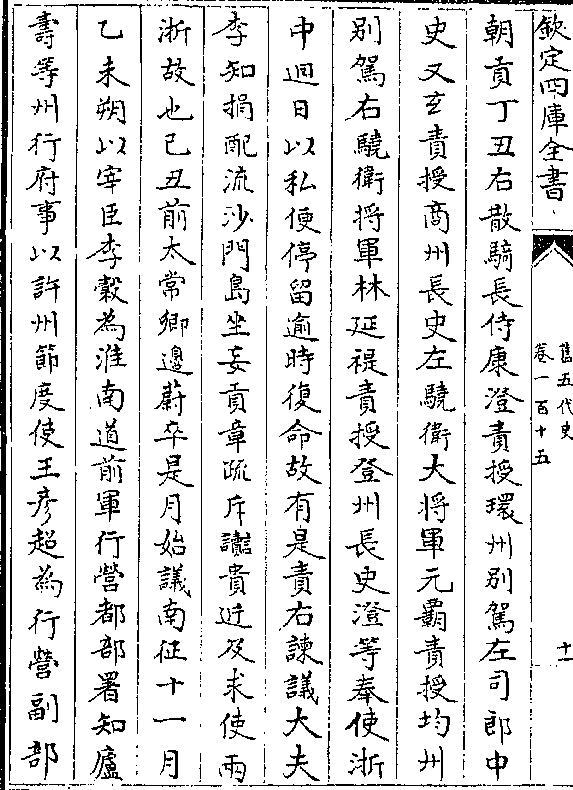 欽定四庫全書
舊五代史
卷一百十五
十一
朝貢丁丑右散騎長侍康澄責授環州別駕左司郎中
史又玄責授商州長史左驍衛大將軍元霸責授均州
別駕右驍衛將軍林延禔責授登州長史澄等奉使浙
中迴日以私便停留逾時復命故有是責右諫議大夫
李知損配流沙門島坐妄貢章疏斥讟貴近及求使兩
浙故也己丑前太常卿邊蔚卒是月始議南征十一月
乙未朔以宰臣李穀為淮南道前軍行營都部署知廬
壽等州行府事以許州節度使王彥超為行營副部